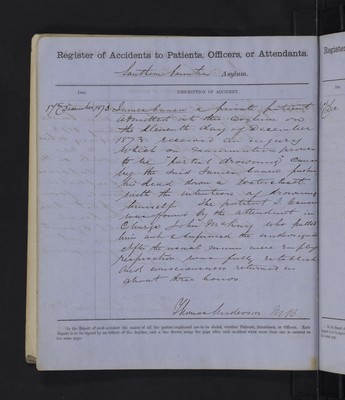 Register of Accidents to Patients, Officers, or Attendants.
Southern Counties Asylum.
Date. DESCRIPTION OF ACCIDENT.
17th December 1873 James a private patient
admitted into this Asylum on
the eleventh day of December
1873 received an injury
which on examination proves
to be "partial drowning" caused
by the said James pushing
his head down a Watercloset
with the intention of drowning
himself. The patient J.
was found by the attendant in
Charge John who pulled
him out & informed the undersigned
After the usual means were employed
respiration was fully established
and consciousness returned in
about three hours
Thomas Anderson M.B.
In the Report of each accident the names of all the parties implicated are to be stated, whether Patients, Attendants, or Officers. Each
Report is to be signed by an Officer of the Asylum, and a line drawn along the page after each accident when more than one is entered on
the same page.
Register